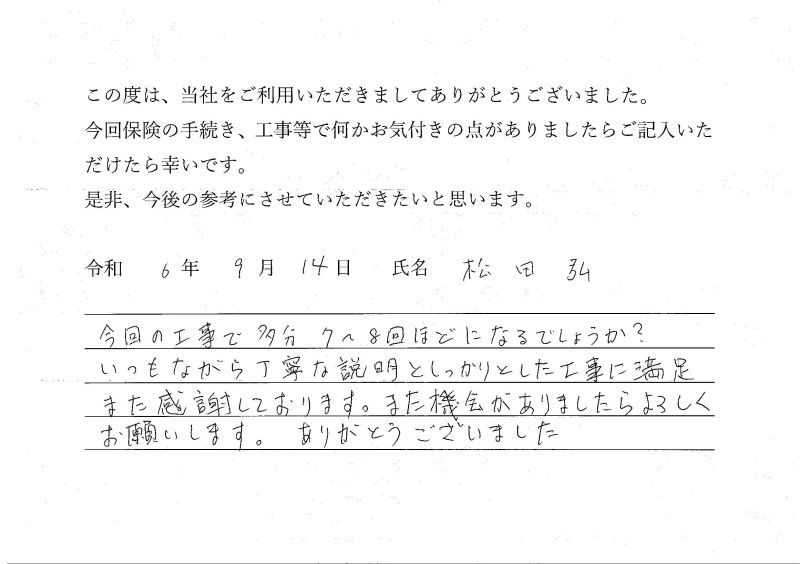 この度は、当社をご利用いただきましてありがとうございました。
今回保険の手続き、工事等で何かお気付きの点がありましたらご記入いた
だけたら幸いです。
是非、今後の参考にさせていただきたいと思います。
令和 6年 9月 14日 氏名 松田 弘
今回の工事で多分 7〜8回ほどになるでしょうか?
いつもながら丁寧な説明としっかりとした工事に満足
また感謝しております。また機会がありましたらよろしく
お願いします。 ありがとうございました